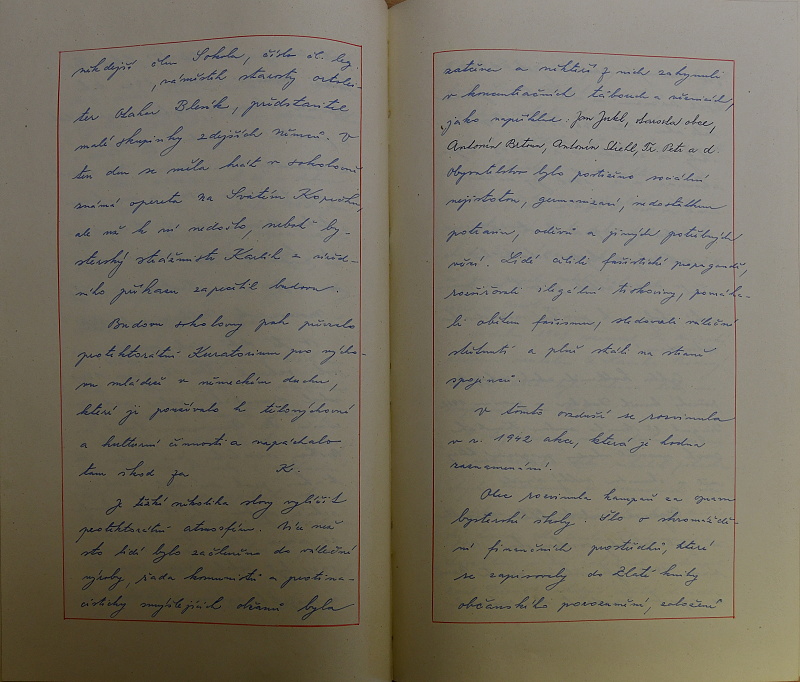 někdejší člen Sokola, číslo čl. leg.
, náměstek starosty
ter Otakar Blesík, představitel
malé skupinky zdejších Němců. V
ten den se měla hrát v sokolovně
známá opereta Na Svatém Kopečku,
ale už k ní nedošlo, neboť by-
sterský strážmistr Karlík z úřed-
ního příkazu zapečetil budovu.
Budovu sokolovny pak převzalo
protektorátní Kuratorium pro vých-
vu mládeže v německém duchu,
které ji používalo k tělovýchovné
a kulturní činnosti a napáchalo
tam škod za K.
Je těžké několika slovy vylíčit
protektorátní atmosféru. Více než
sto lidí bylo začleněno do válečné
výroby, řada komunistů a protina-
cisticky smýšlejících občanů byla
zatčena a někteří z nich zahynuli
v koncentračních táborech a věznicích,
jako například: Jan Jukl, starosta obce,
Antonín Brtna, Antonín Diehl, Fr. Petr a d.
Obyvatelstvo bylo postiženo sociální
nejistotou, germanizací, nedostatkem
potravin, oděvů a jiných potřebných
věcí. Lidé čelili fašistické propagandě,
rozšiřovali ilegální tiskoviny, pomáha-
li obětem fašismu, sledovali válečné
události a plně stáli na straně
spojenců.
V tomto ovzduší se rozvinula
v r. 1942 akce, která je hodna
zaznamenání.
Obec rozvinula kampaň za opravu
bysterské školy. Šlo o shromáždě-
ní finančních prostředků, které
se zapisovaly do Zlaté knihy
občanského porozumění, založené